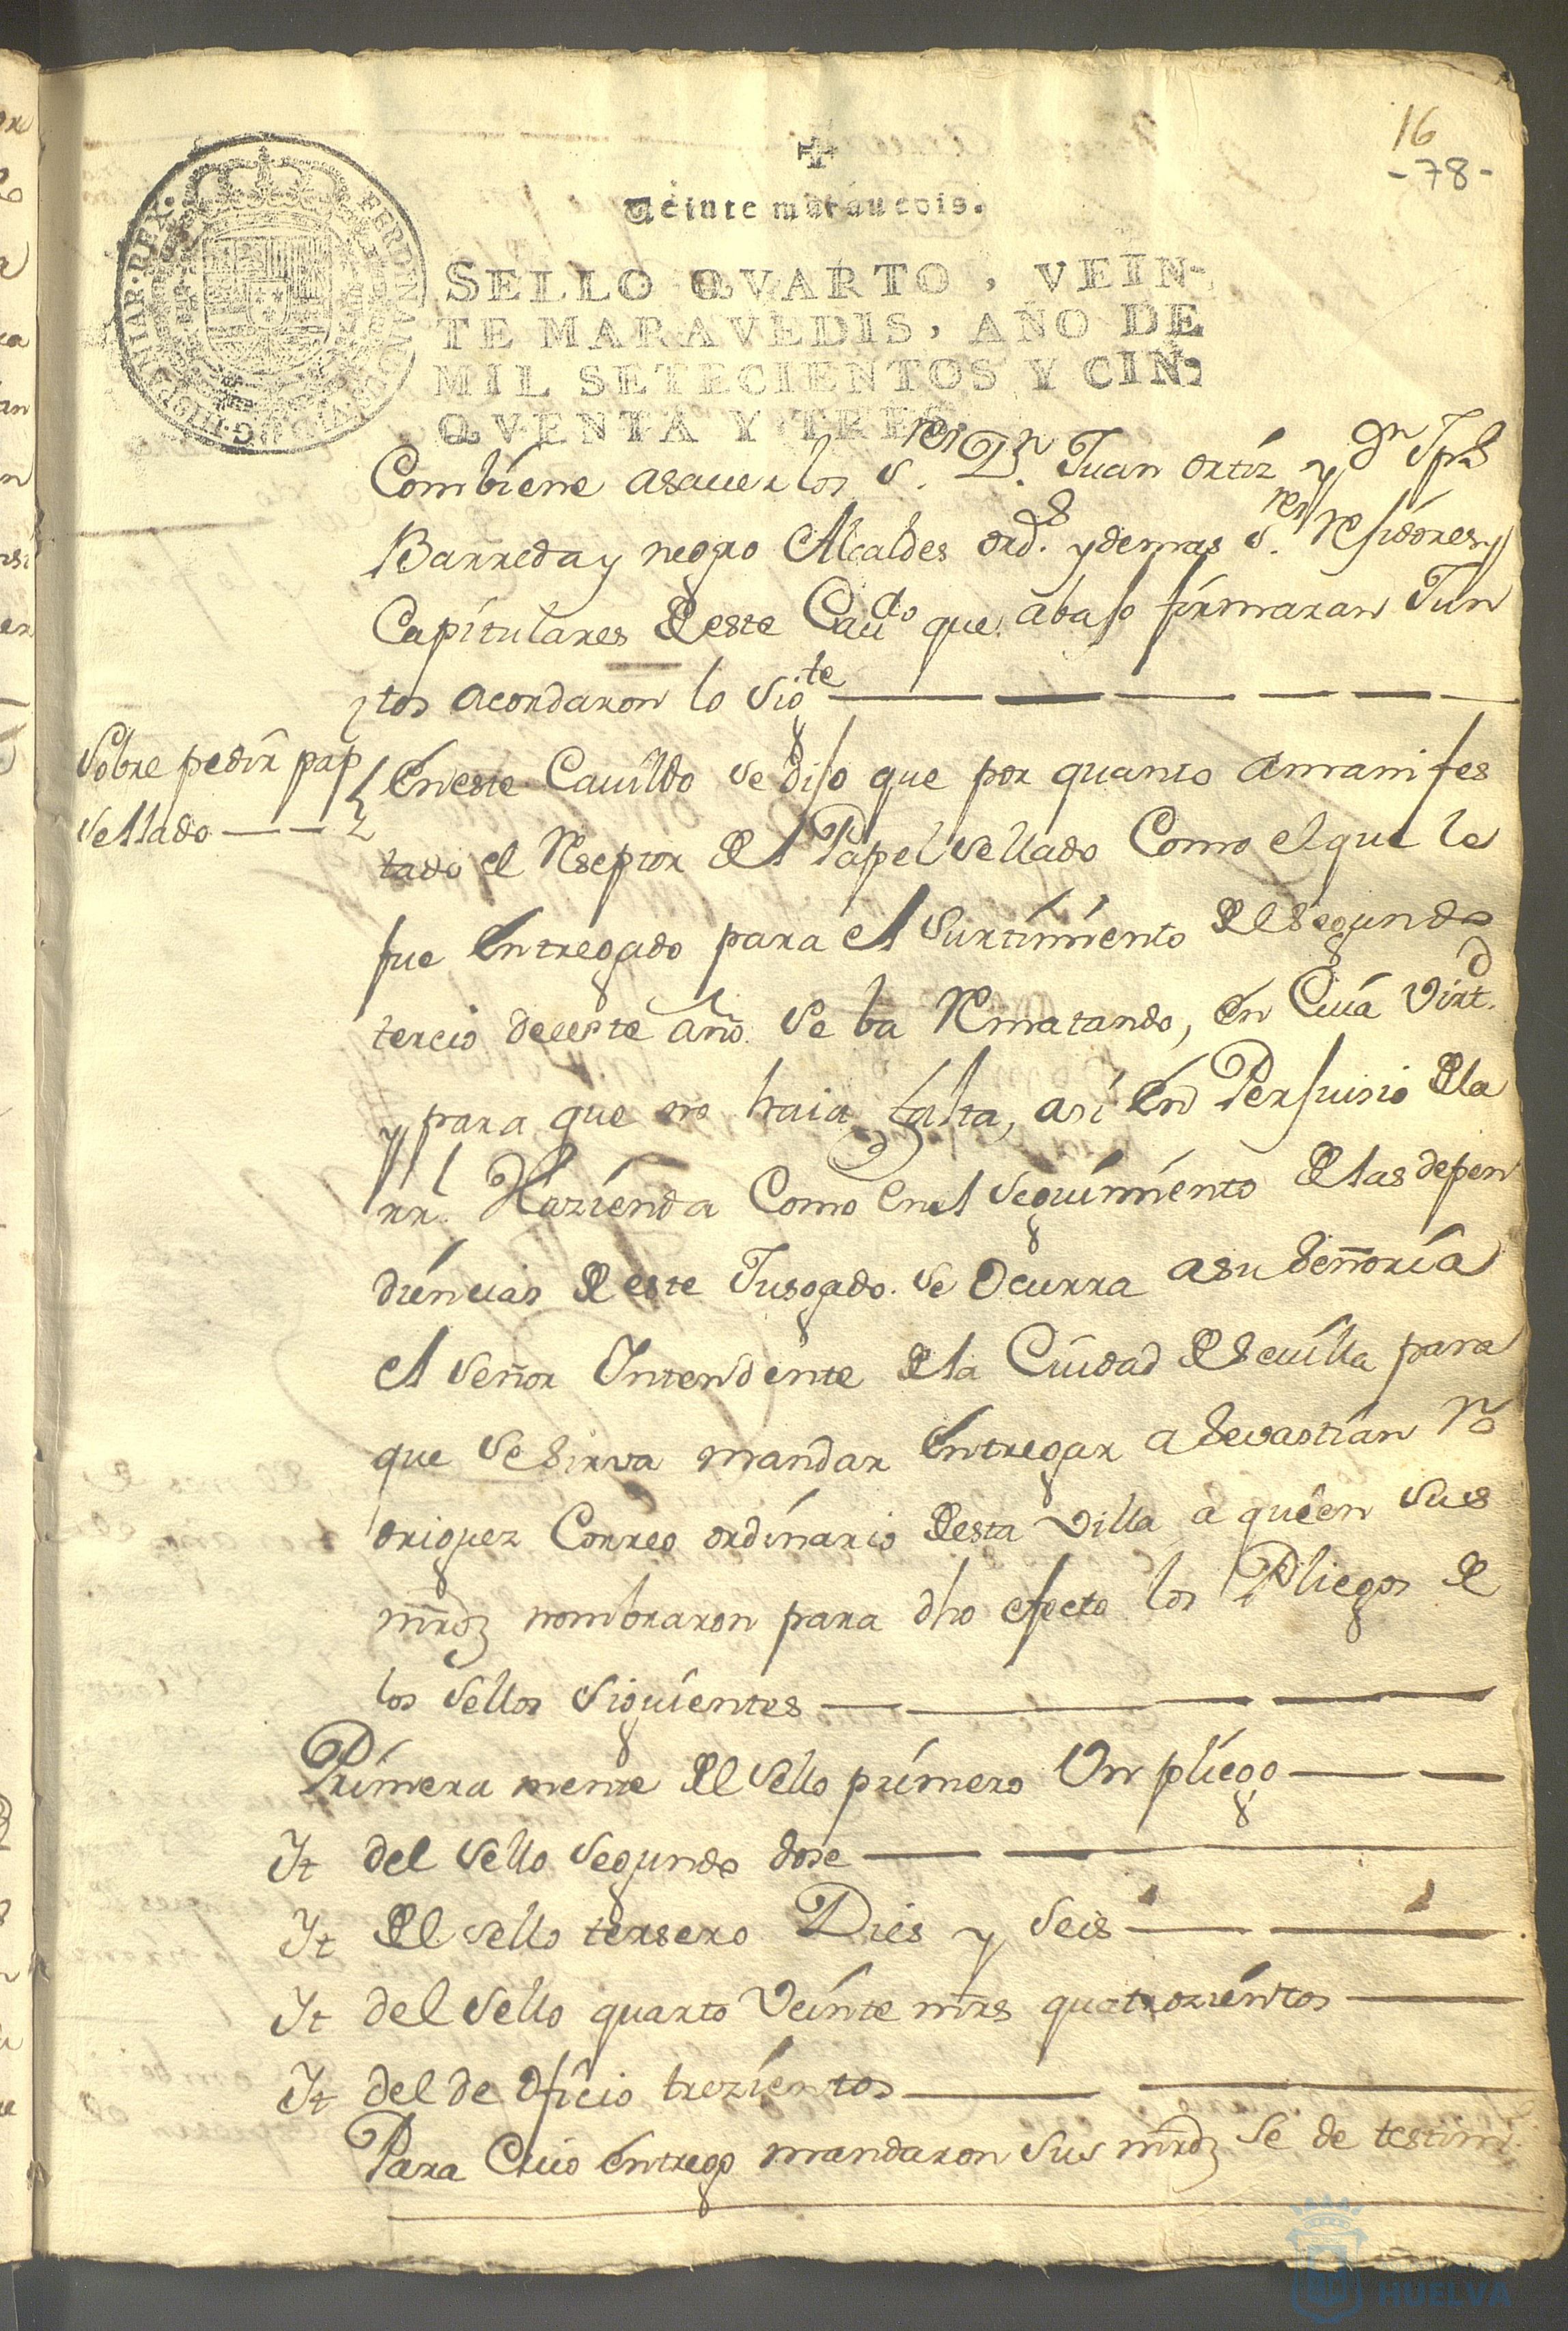 16
-78-
Veinte marauedis.
SELLO QVARTO, VEIN-
TE MARAVEDIS, AÑO DE
MIL SETECIENTOS Y CIN-
QVENTA Y TRES
Combiene asauer los S.res D.n Juan ortiz y Dn
Barreda y negro Alcaldes ord.s y demas S.res Rejidores y
Capitulares de este Caudo que abajo firmaran Jun
tos acordaron lo sigte
Sobre pedir pap
sellado
En este Cauildo se dijo que por quanto a manifes
tado el Reseptor del Papel sellado Como el que le
fue entregado para el surtimiento del segundo
tercio de este año se ba Rematando, en Cuia virtd.
y para que no haia falta, asi en Perjuisio de la
rr.l Hazienda Como en el seguimiento de las depen
diencias de este Jusgado se Ocurra a su señoria
el señor Yntendente de la Ciudad de seuilla para
que se sirva mandar entregar a Sevastian Ro
driguez Correo ordinario de esta villa a quien sus
mrdz nombraron para dho efecto los Pliegos de
los sellos siguientes
Primera mente del sello primero Un pliego
Yt del sello segundo dose
Yt del sello tersero Dies y seis
Yt del sello quarto Veinte mrs quatrozientos
Yt del de oficio trezientos
Para Cuio entrego mandaron sus mrdz se de testimo
HUELVA